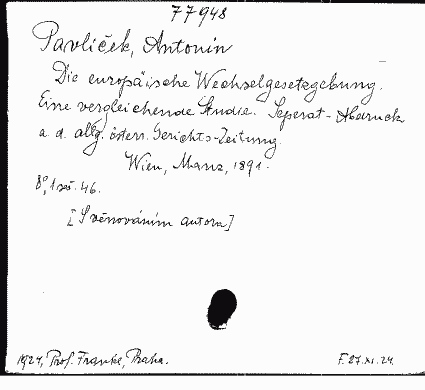 77948
Pavlíček, Antonín
Die europäische Wechselgesetzgebung.
Eine vergleichende Studie. Seperat-Abdruck
a. d. allg. österr. Gerichts-Zeitung.
Wien, Manz, 1891.
8°, 1 sv. 46.
[S věnováním autora]
1924, Prof. Franke, Praha.
F. 27.XI.24.